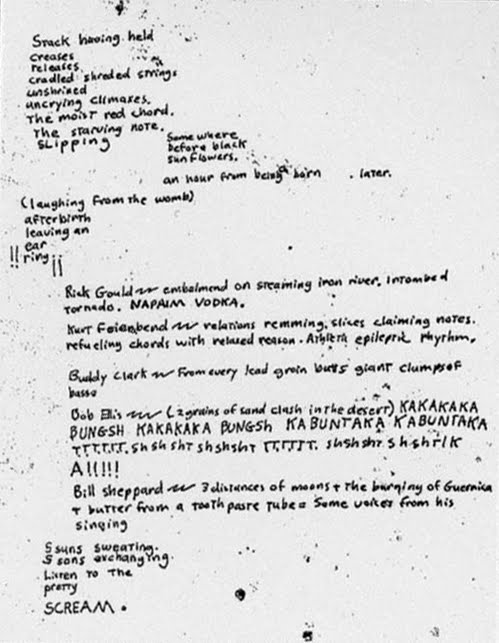 Stack having held
creases
releases
cradled shreded strings
unshrined
uncrying climaxes.
The moist red chord.
The starving note.
SLIPPING
Somewhere
before black
sunflowers.
an hour from being born . later.
(laughing from the womb)
afterbirth
leaving an
ear
!! ring !!
Rick Gould embalmend on steaming iron river, intombed
tornado. NAPAIM VODKA.
Kurt Feienbend relations remming, slices claiming notes.
refueling chords with relaxed reason. Athletic epileptic rhythm.
Buddy Clark From every lead groin butts giant clumps of
basso
Bob Ellis (2 grains of sand clash in the desert) KAKAKAKA
BUNGSH KAKAKAKA BUNGSH KABUNTAKA KABUNTAKA
TTTTTT. sh sh sht shshsht TTTTTT. shshsht shshtlk
All!!!
Bill sheppard 3 distances of moons + the burning of Guernica
+ butter from a tooth paste tube = Some voices from his
singing
5 suns sweating.
5 sons exchanging.
Listen to the
pretty
SCREAM.